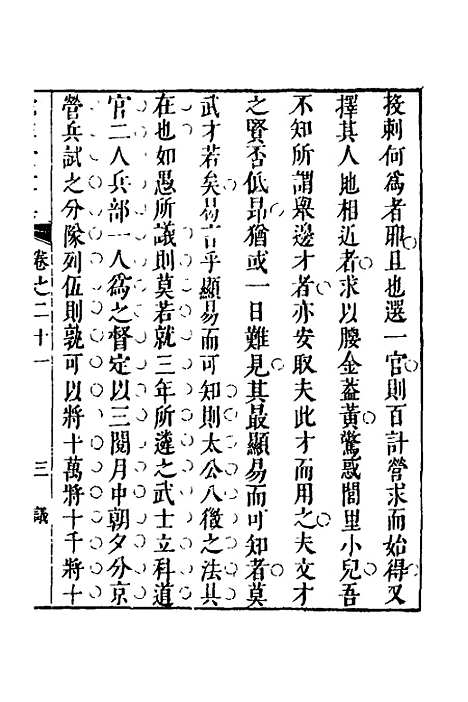 接刺何爲者耶且也選一官則百計營求而始得又
擇其人地相近者求以腰金蓋黃驚惑閭里小兒吾
不知所謂舉邊才者亦安取夫此才而用之夫文才
之賢否低昂猶或一日難見其最顯易而可知者莫
武才若矣曷言乎顯易而可知則太公八徵之法具
在也如愚所議則莫若就三年所選之武士立科道
官二人兵部一人爲之督定以三閱月中朝夕分京
營兵試之分隊列伍則孰可以將十萬將十千將十
卷之二十一
三
議